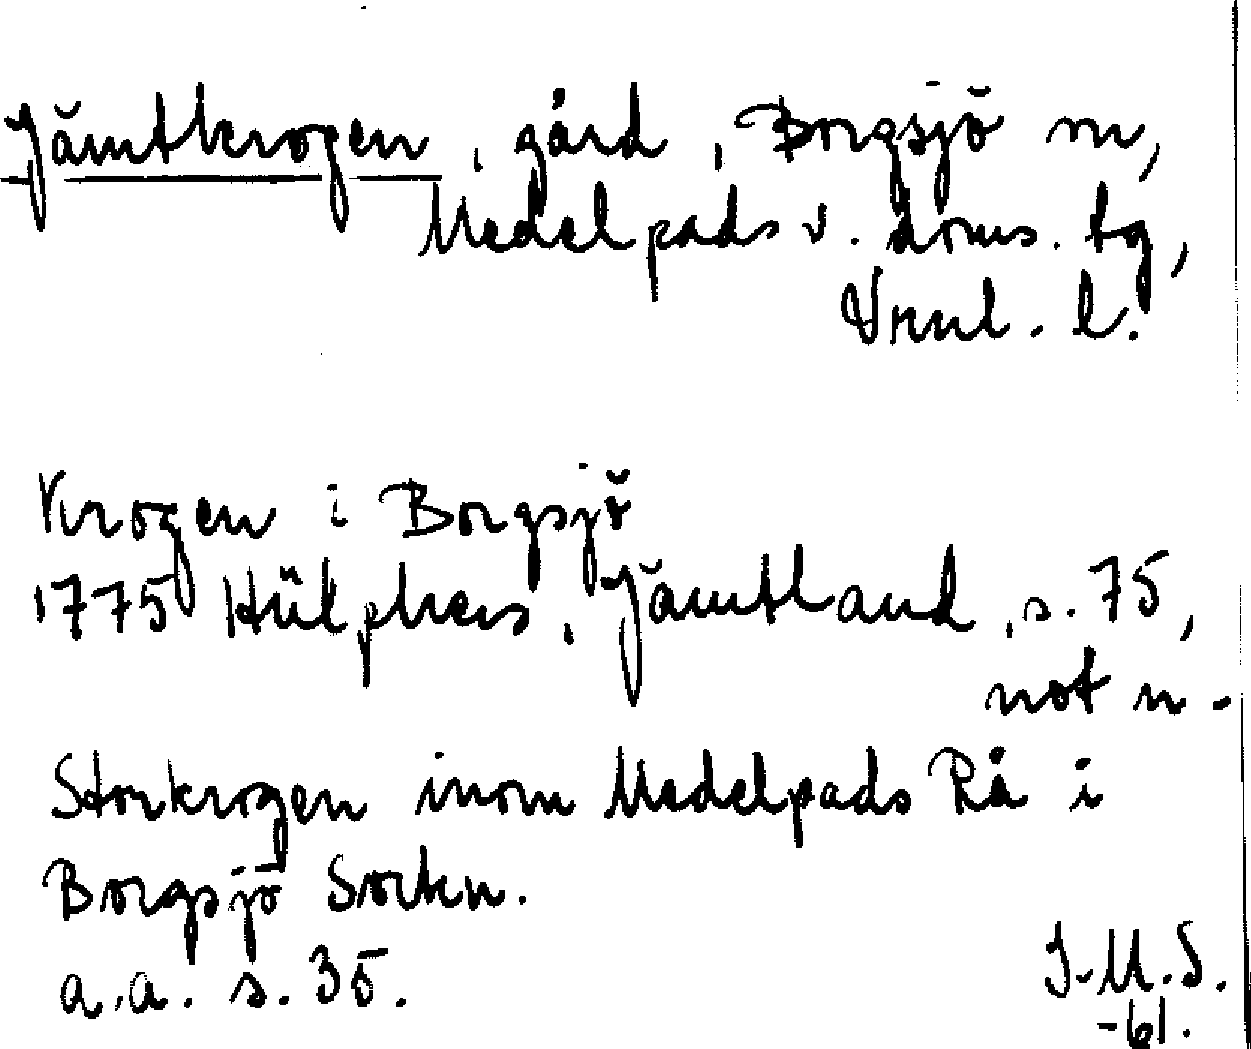 Jämtkrogen, gård, Borgsjö sn,
Medelpads v. doms. tg,
Vnul. l.
Krogen i Borgsjö
1775 Hülphers, Jämtland, s. 75,
not n.
Storkrogen inom Medelpads Rå i
Borgsjö Sorken.
a.a. s. 35.
J.M.S.
-61.